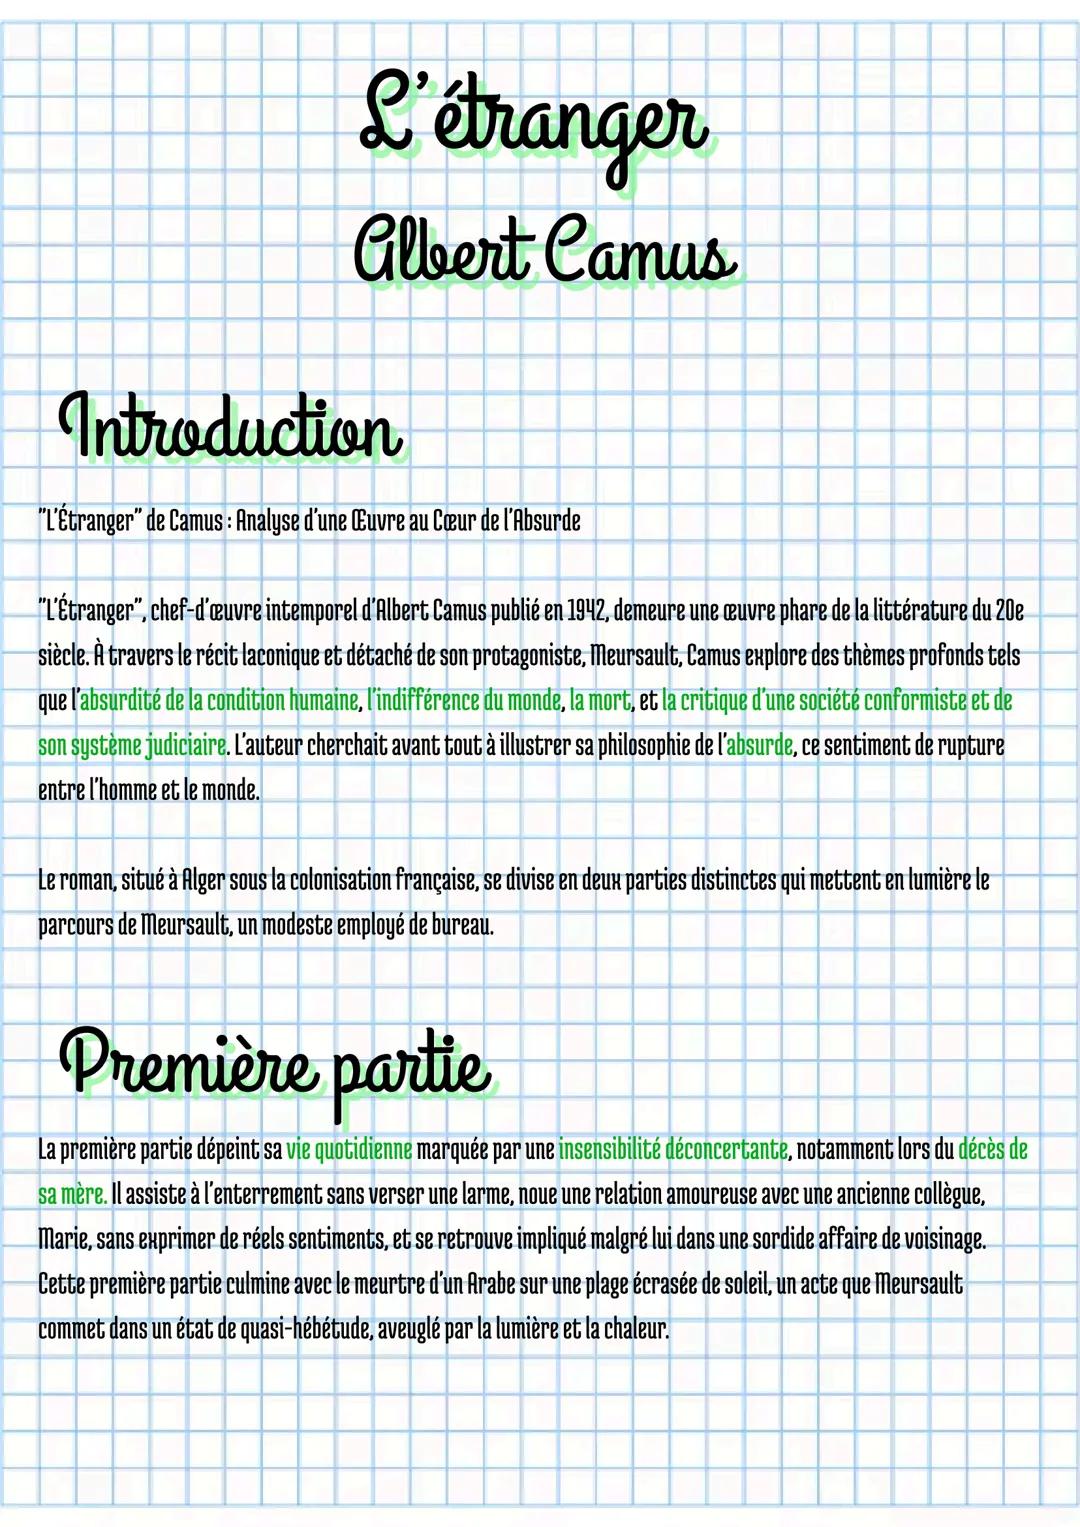 L'étranger
Albert Camus
Introduction
"L'Étranger" de Camus : Analyse d'une Œuvre au Cœur de l'Absurde
"L'Étranger", chef-d'œuvre intemporel d'Albert Camus publié en 1942, demeure une œuvre phare de la littérature du 20e
siècle. À travers le récit laconique et détaché de son protagoniste, Meursault, Camus explore des thèmes profonds tels
que l'absurdité de la condition humaine, l'indifférence du monde, la mort, et la critique d'une société conformiste et de
son système judiciaire. L'auteur cherchait avant tout à illustrer sa philosophie de l'absurde, ce sentiment de rupture
entre l'homme et le monde.
Le roman, situé à Alger sous la colonisation française, se divise en deux parties distinctes qui mettent en lumière le
parcours de Meursault, un modeste employé de bureau.
Première partie
La première partie dépeint sa vie quotidienne marquée par une insensibilité déconcertante, notamment lors du décès de
sa mère. Il assiste à l'enterrement sans verser une larme, noue une relation amoureuse avec une ancienne collègue,
Marie, sans exprimer de réels sentiments, et se retrouve impliqué malgré lui dans une sordide affaire de voisinage.
Cette première partie culmine avec le meurtre d'un Arabe sur une plage écrasée de soleil, un acte que Meursault
commet dans un état de quasi-hébétude, aveuglé par la lumière et la chaleur.